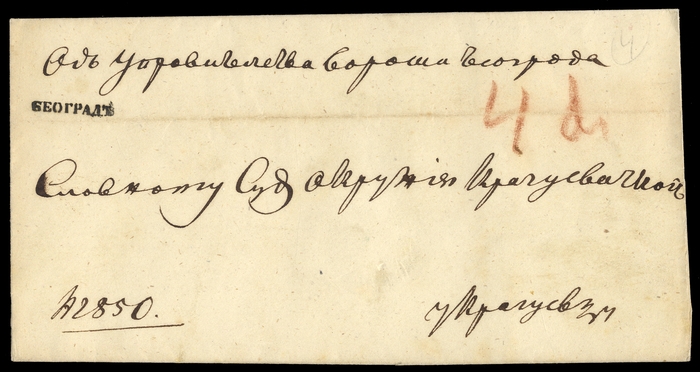 Одъ Управителства Вароши Београда
4
БЕОГРАДЪ
Славному Суду Окружія Крагуевачкой
№ 2850.
у Крагуевцу